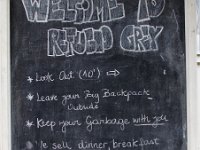 WELCOME TO
REFUGIO GREY
* Look Out (10') ⇨
* Leave your Big Backpack
Outside
* Keep your Garbage with you
* We sell dinner, breakfast